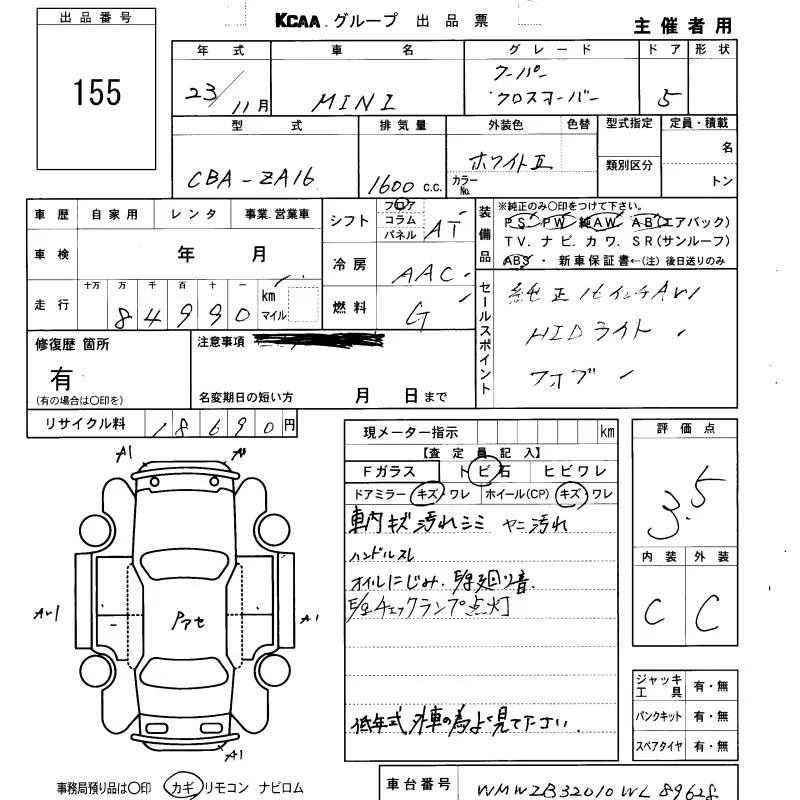 出品番号
155
KCAA グループ 出品票
主催者用
年式 車名 グレード ドア 形状
23/11月 MINI クーパー クロスオーバー 5
型式 排気量 外装色 色替 型式指定 定員・積載
CBA-ZA16 1600 c.c. ホワイトII カラーNo. 類別区分 名 トン
車歴 自家用 レンタ 事業.営業車
車検 年 月
走行 十万 万 千 百 十 一
84990 km マイル
シフト フロア コラム パネル AT
冷房 AAC
燃料 G
装備品
※純正のみ〇印をつけて下さい。
PS PW 純AW. AB(エアバック)
TV. ナビ. カワ. SR(サンルーフ)
ABS・新車保証書←(注) 後日送りのみ
セールスポイント
純正16インチAW
HIDライト
フォブ
修復歴 箇所
有
(有の場合は〇印を)
注意事項
名変期日の短い方 月 日まで
リサイクル料 18690 円
現メーター指示 km
【査定員記入】
Fガラス トビ石 ヒビワレ
ドアミラー キズ・ワレ ホイール(CP) キズ・ワレ
車内キズ汚れシミ ヤニ汚れ
ハンドルスレ
オイルにじみ. E/g廻り音.
E/gチェックランプ点灯
低年式 外車の為よく見て下さい.
評価点
3.5
内装 外装
C C
ジャッキ工具 有・無
パンクキット 有・無
スペアタイヤ 有・無
A1
A1
A1
A1
事務局預り品は〇印 カギ リモコン ナビロム
車台番号 WMWZB32010WL89628